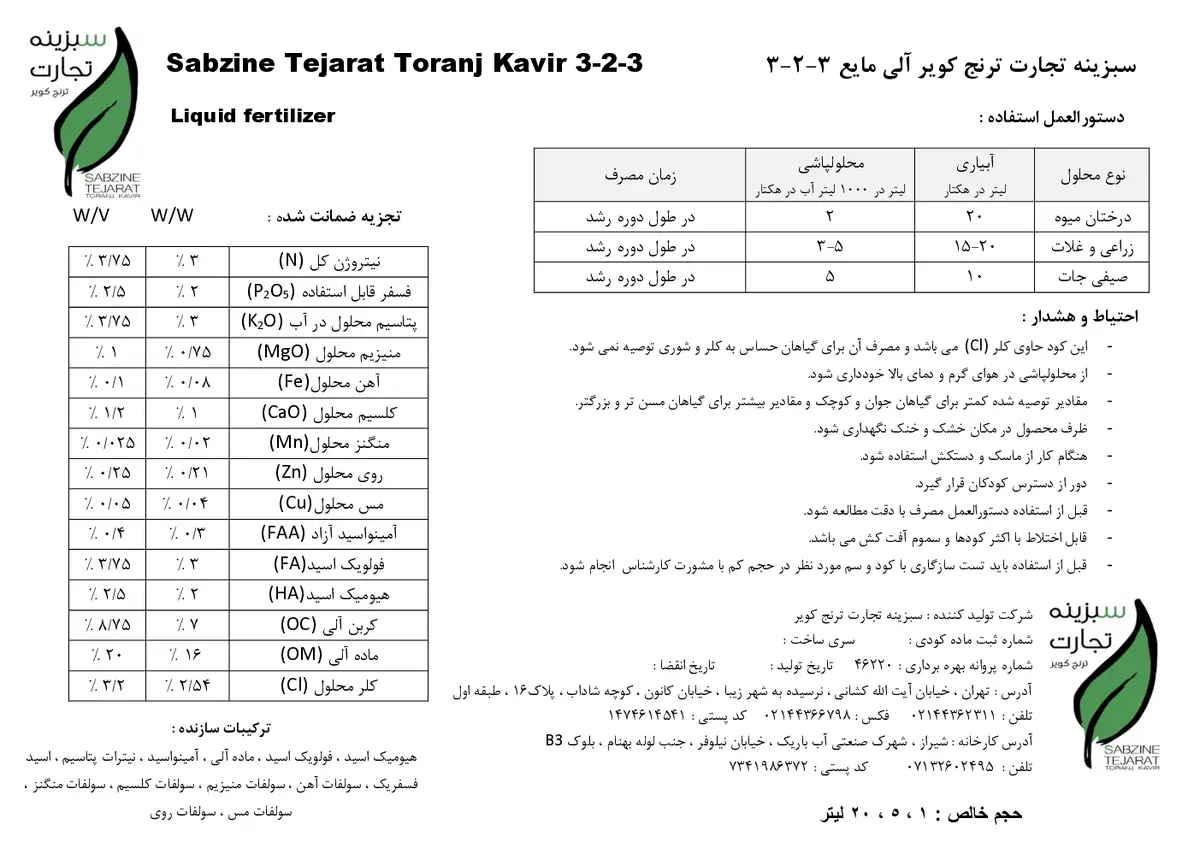 سبزینه
تجارت
ترنج کویر
SABZINE
TEJARAT
TORANJ KAVIR
Sabzine Tejarat Toranj Kavir 3-2-3
سبزینه تجارت ترنج کویر آلی مایع ۳-۲-۳
Liquid fertilizer
دستورالعمل استفاده :
نوع محلول آبیاری لیتر در هکتار محلولپاشی لیتر در ۱۰۰۰ لیتر آب در هکتار زمان مصرف
درختان میوه ۲۰ ۲ در طول دوره رشد
زراعی و غلات ۱۵-۲۰ ۳-۵ در طول دوره رشد
صیفی جات ۱۰ ۵ در طول دوره رشد
احتیاط و هشدار :
- این کود حاوی کلر (Cl) می باشد و مصرف آن برای گیاهان حساس به کلر و شوری توصیه نمی شود.
- از محلولپاشی در هوای گرم و دمای بالا خودداری شود.
- مقادیر توصیه شده کمتر برای گیاهان جوان و کوچک و مقادیر بیشتر برای گیاهان مسن تر و بزرگتر.
- ظرف محصول در مکان خشک و خنک نگهداری شود.
- هنگام کار از ماسک و دستکش استفاده شود.
- دور از دسترس کودکان قرار گیرد.
- قبل از استفاده دستورالعمل مصرف با دقت مطالعه شود.
- قابل اختلاط با اکثر کودها و سموم آفت کش می باشد.
- قبل از استفاده باید تست سازگاری با کود و سم مورد نظر در حجم کم با مشورت کارشناس انجام شود.
تجزیه ضمانت شده : W/W W/V
نیتروژن کل (N) ۳ ٪ ۳/۷۵ ٪
فسفر قابل استفاده (P₂O₅) ۲ ٪ ۲/۵ ٪
پتاسیم محلول در آب (K₂O) ۳ ٪ ۳/۷۵ ٪
منیزیم محلول (MgO) ۰/۷۵ ٪ ۱ ٪
آهن محلول(Fe) ۰/۰۸ ٪ ۰/۱ ٪
کلسیم محلول (CaO) ۱ ٪ ۱/۲ ٪
منگنز محلول(Mn) ۰/۰۲ ٪ ۰/۰۲۵ ٪
روی محلول (Zn) ۰/۲۱ ٪ ۰/۲۵ ٪
مس محلول(Cu) ۰/۰۴ ٪ ۰/۰۵ ٪
آمینواسید آزاد (FAA) ۰/۳ ٪ ۰/۴ ٪
فولویک اسید(FA) ۳ ٪ ۳/۷۵ ٪
هیومیک اسید(HA) ۲ ٪ ۲/۵ ٪
کربن آلی (OC) ۷ ٪ ۸/۷۵ ٪
ماده آلی (OM) ۱۶ ٪ ۲۰ ٪
کلر محلول (Cl) ۲/۵۴ ٪ ۳/۲ ٪
ترکیبات سازنده :
هیومیک اسید ، فولویک اسید ، ماده آلی ، آمینواسید ، نیترات پتاسیم ، اسید
فسفریک ، سولفات آهن ، سولفات منیزیم ، سولفات کلسیم ، سولفات منگنز ،
سولفات مس ، سولفات روی
سبزینه
تجارت
ترنج کویر
SABZINE
TEJARAT
TORANJ KAVIR
شرکت تولید کننده : سبزینه تجارت ترنج کویر
شماره ثبت ماده کودی : سری ساخت :
شماره پروانه بهره برداری : ۴۶۲۲۰ تاریخ تولید : تاریخ انقضا :
آدرس : تهران ، خیابان آیت الله کشانی ، نرسیده به شهر زیبا ، خیابان کانون ، کوچه شاداب ، پلاک۱۶ ، طبقه اول
تلفن : ۰۲۱۴۴۳۶۲۳۱۱ فکس : ۰۲۱۴۴۳۶۶۷۹۸ کد پستی : ۱۴۷۴۶۱۴۵۴۱
آدرس کارخانه : شیراز ، شهرک صنعتی آب باریک ، خیابان نیلوفر ، جنب لوله بهنام ، بلوک B3
تلفن : ۰۷۱۳۲۶۰۲۴۹۵ کد پستی : ۷۳۴۱۹۸۶۳۷۲
حجم خالص : ۱ ، ۵ ، ۲۰ لیتر